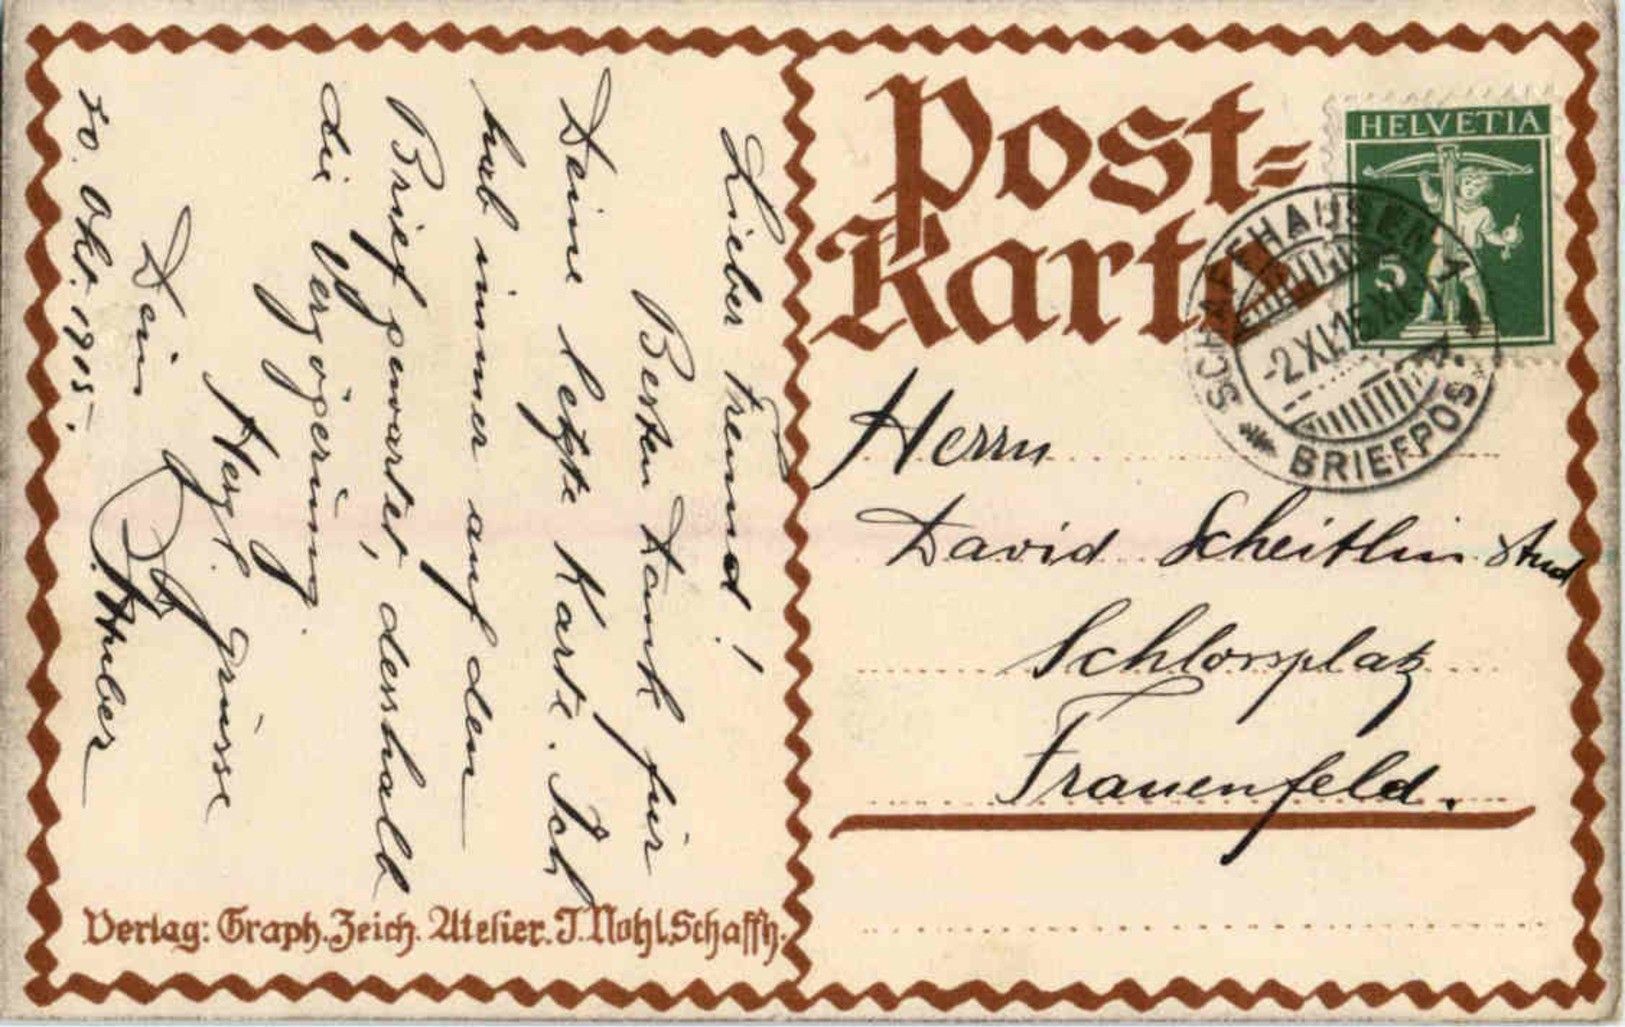 Lieber Freund!
Besten Dank für
Deine letzte Karte. Ich
hab immer auf den
Brief gewartet, desshalb
die Verzögerung.
Herzl. Grüsse
Dein
Huber
30. Okt. 1915.
Verlag: Graph. Zeich. Atelier. J. Nohl, Schaffh.
Post-
Karte
HELVETIA
5
SCHAFFHAUSEN 1
-2.XI.15.XI-
BRIEFPOST
Herrn
David Scheitlin stud
Schlossplatz
Frauenfeld.